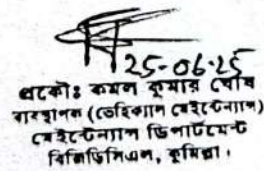 25-06-25
প্রকৌঃ কমল কুমার ঘোষ
ব্যবস্থাপক (ভেহিক্যাল মেইন্টেন্যান্স)
মেইন্টেন্যান্স ডিপার্টমেন্ট
বিজিডিসিএল, কুমিল্লা।